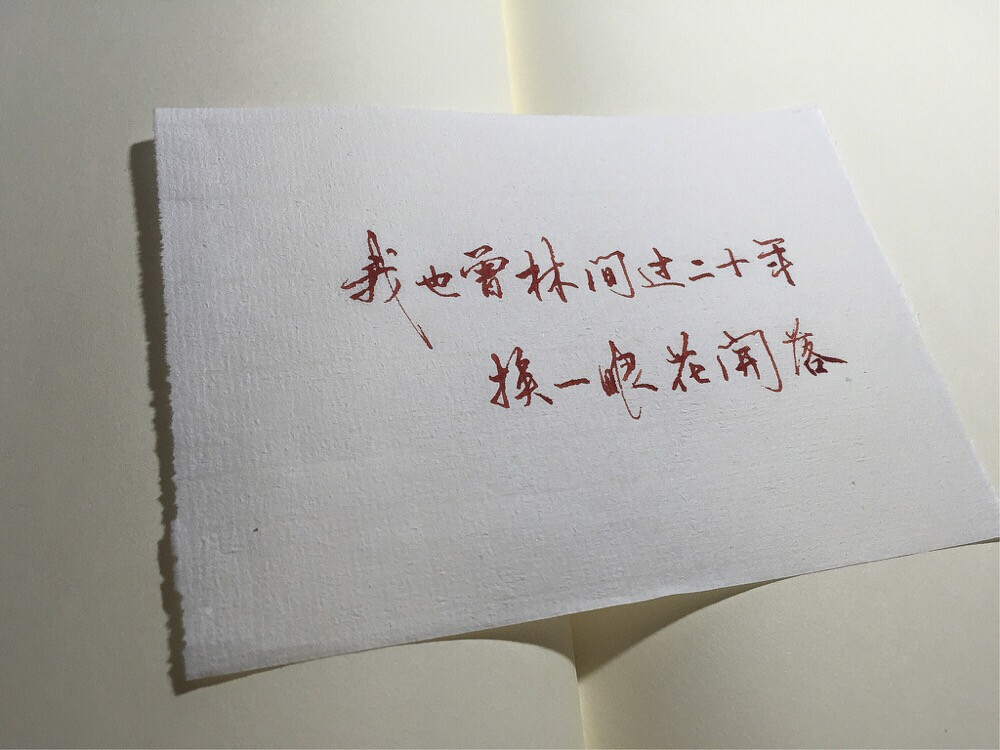 我也曾林间过二十年
换一眼花开落